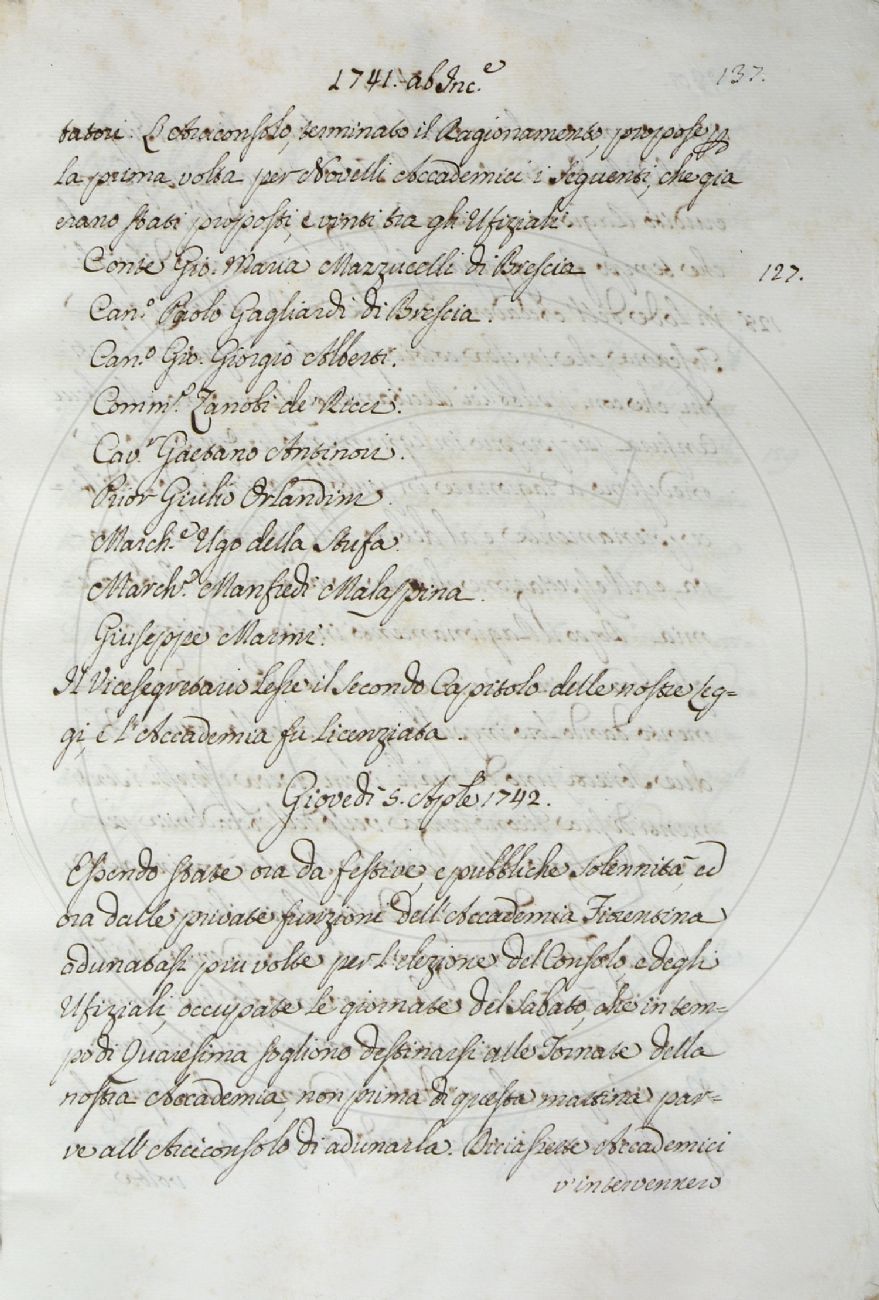 1741. ab Inc.e
137.
tatori. L'Arciconsolo, terminato il Ragionamento, propose p
la prima volta per Novelli Accademici i seguenti, che gia
erano stati proposti, e vinti tra gli Ufiziali
Conte Gio: Maria Mazzucelli di Brescia
127.
Can.o Paolo Gagliardi di Brescia.
Can.o Gio. Giorgio Alberti.
Comm.e Zanobi de' Ricci.
Cav.r Gaetano Antinori.
Prior Giulio Orlandini
March.e Ugo della Stufa.
March.e Manfredi Malaspina.
Giuseppe Marmi.
Il Vicesegretario lesse il secondo Capitolo delle nostre Leg=
gi, e l'Accademia fu licenziata.
Giovedì 5. Aple 1742.
Essendo state ora da festive, e pubbliche solennità, ed
ora dalle private funzioni dell'Accademia Fiorentina
adunatasi più volte per l'elezione del Consolo e degli
Ufiziali, occupate le giornate del Sabato, che in tem=
po di Quaresima sogliono destinarsi alle Tornate della
nostra Accademia, non prima di questa mattina par=
ve all'Arciconsolo di adunarla. Diciassette Accademici
v'intervennero